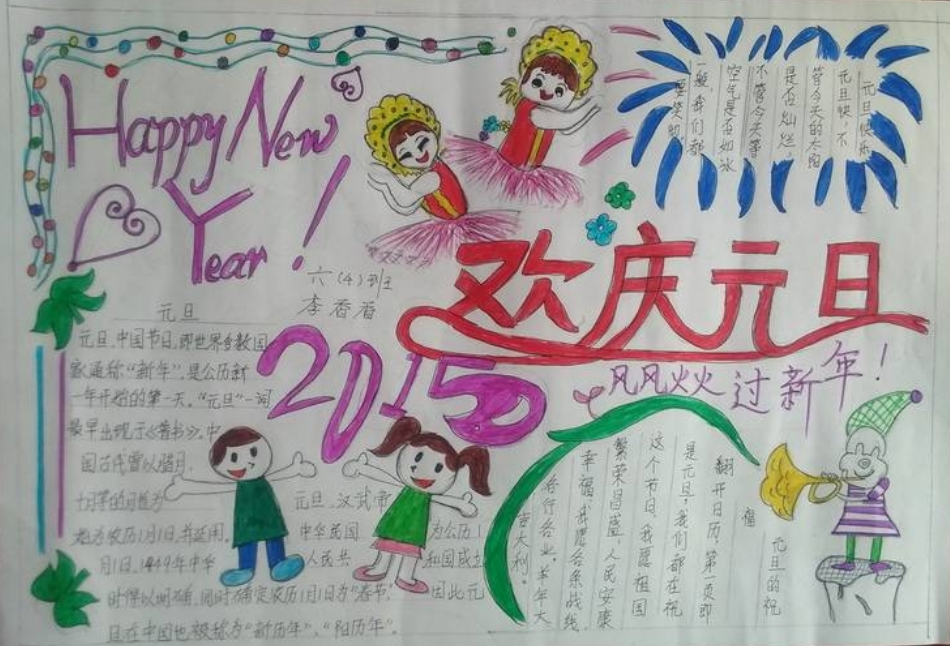 Happy New
Year!
六(4)班
李香香
欢庆元旦
2015
风风火火过新年!
元旦快乐
元旦快乐,不
管今天的太阳
是否灿烂,
不管今天等
空气是否如冰
一般,我们都
要笑
元旦
元旦,中国节日,即世界多数国
家通称“新年”,是公历新
一年开始的第一天。“元旦”一词
最早出现于《晋书》。中
国古代曾以腊月、
十月等的月首为元旦,汉武帝
始为农历1月1日,并延用。中华民国为公历1
月1日,1949年中华人民共和国成立
时得以明确,同时确定农历1月1日为“春节”,因此元
旦在中国也被称为“新历年”、“阳历年”。
元旦的祝
福
翻开日历,第一页即
是元旦,我们都在祝
这个节日,我愿祖国
繁荣昌盛,人民安康
幸福,我愿各条战线,
各行各业,羊年大
吉大利。